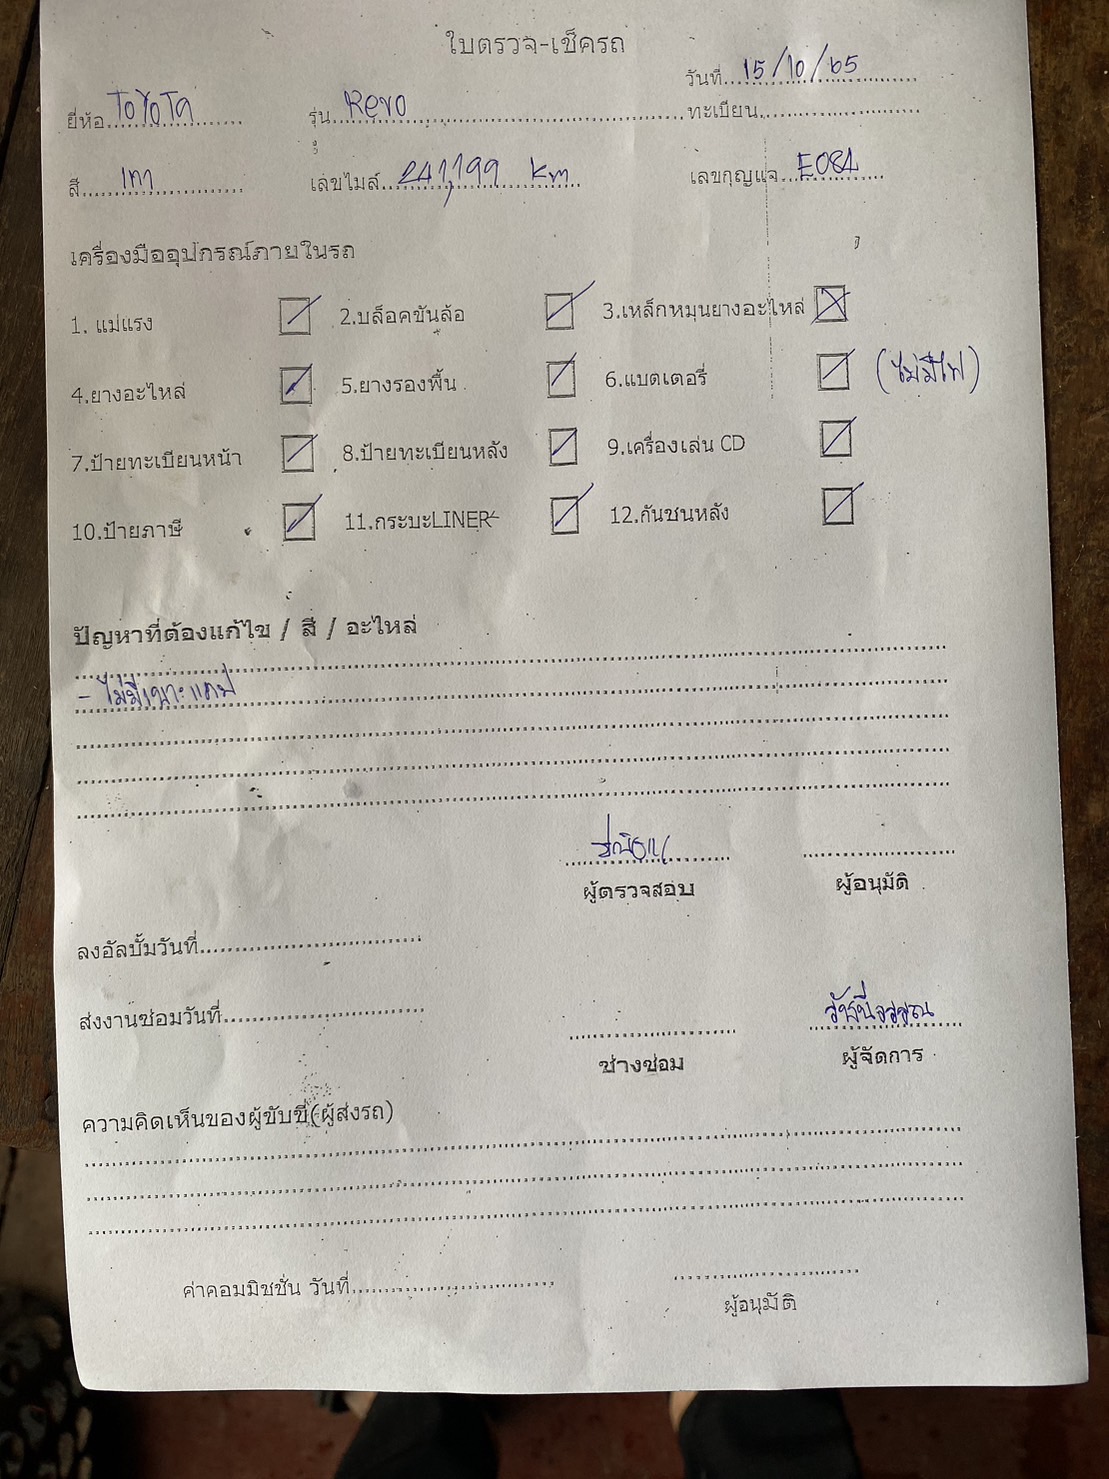 ใบตรวจ-เช็ครถ
วันที่ 15/10/65
ยี่ห้อ ToYoTa รุ่น Revo ทะเบียน
สี เทา เลขไมล์ 241,199 km เลขกุญแจ E084
เครื่องมืออุปกรณ์ภายในรถ
1. แม่แรง 2.บล็อคขันล้อ 3.เหล็กหมุนยางอะไหล่
4.ยางอะไหล่ 5.ยางรองพื้น 6.แบตเตอรี่ (ไม่มีไฟ)
7.ป้ายทะเบียนหน้า 8.ป้ายทะเบียนหลัง 9.เครื่องเล่น CD
10.ป้ายภาษี 11.กระบะLINER 12.กันชนหลัง
ปัญหาที่ต้องแก้ไข / สี / อะไหล่
- ไม่มีเบาะแคป
ผู้ตรวจสอบ ผู้อนุมัติ
ลงอัลบั้มวันที่
ส่งงานซ่อมวันที่
ช่างซ่อม ผู้จัดการ
ความคิดเห็นของผู้ขับขี่(ผู้ส่งรถ)
ค่าคอมมิชชั่น วันที่
ผู้อนุมัติ